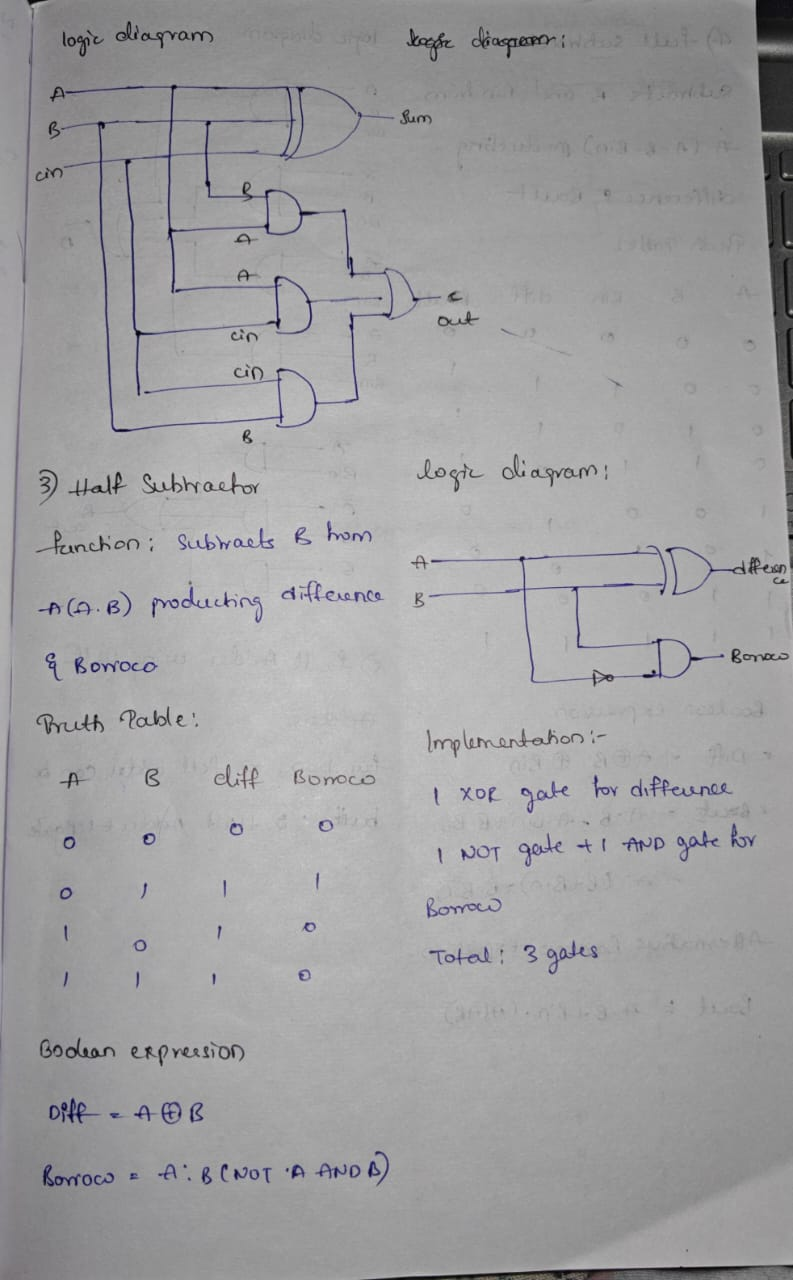 logic diagram
logic diagram:
A
B
cin
Sum
B
A
A
cin
cin
B
c
out
3) Half Subtractor
function: Subtracts B from
A(A.B) producting difference
& Borroco
Truth Table:
A B diff Borroco
0 0 0 0
0 1 1 1
1 0 1 0
1 1 1 0
Boolean expression
Diff = A ⊕ B
Borroco = A'. B (NOT 'A AND B)
logic diagram:
A
B
differen
ce
Borroco
Implementation:-
1 XOR gate for difference
1 NOT gate + 1 AND gate for
Borroco
Total: 3 gates